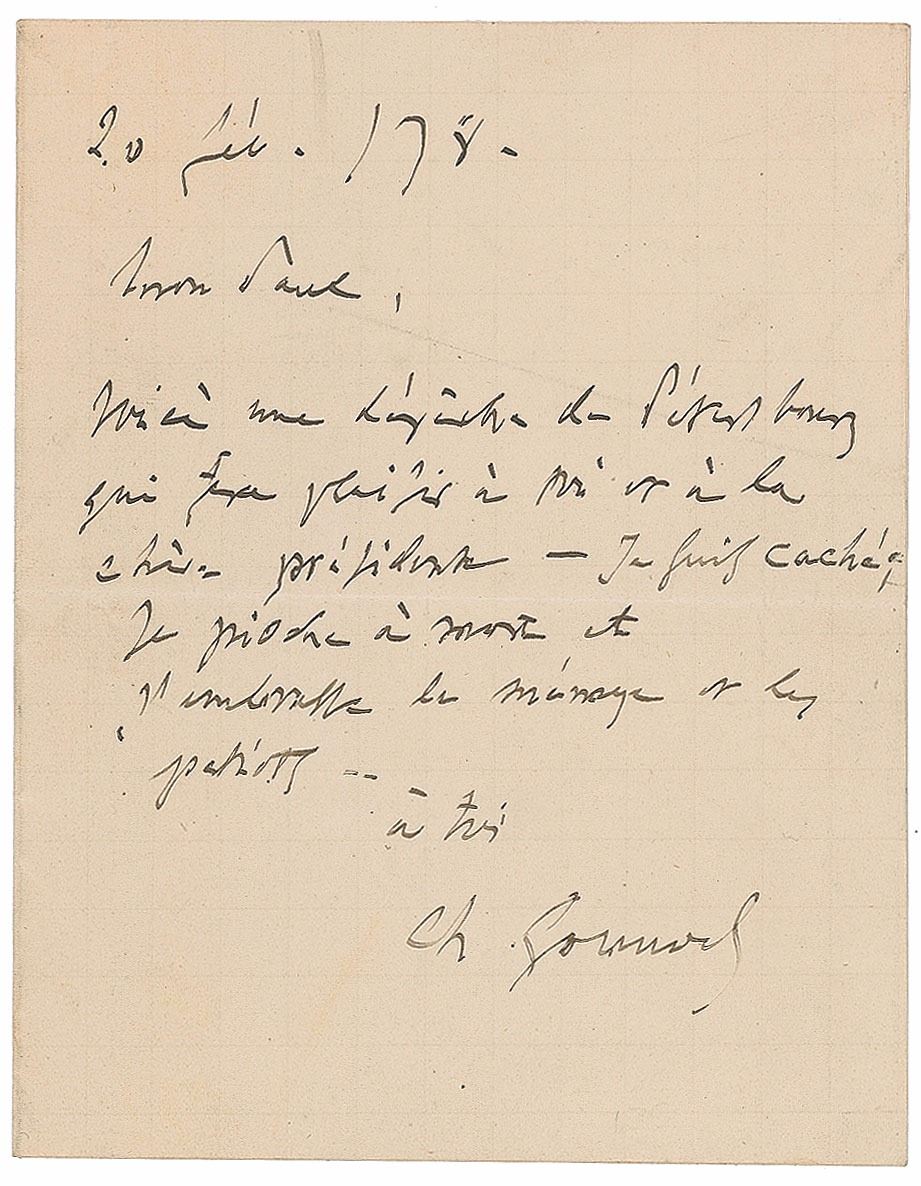 20 fév. /78.
Mon Paul,
Voici une dépêche de Pétersbourg
qui fera plaisir à toi et à la
chère présidente — Je suis caché,
Je pioche à mort et
j'embrasse le ménage et les
petiots --
à toi
Ch. Gounod